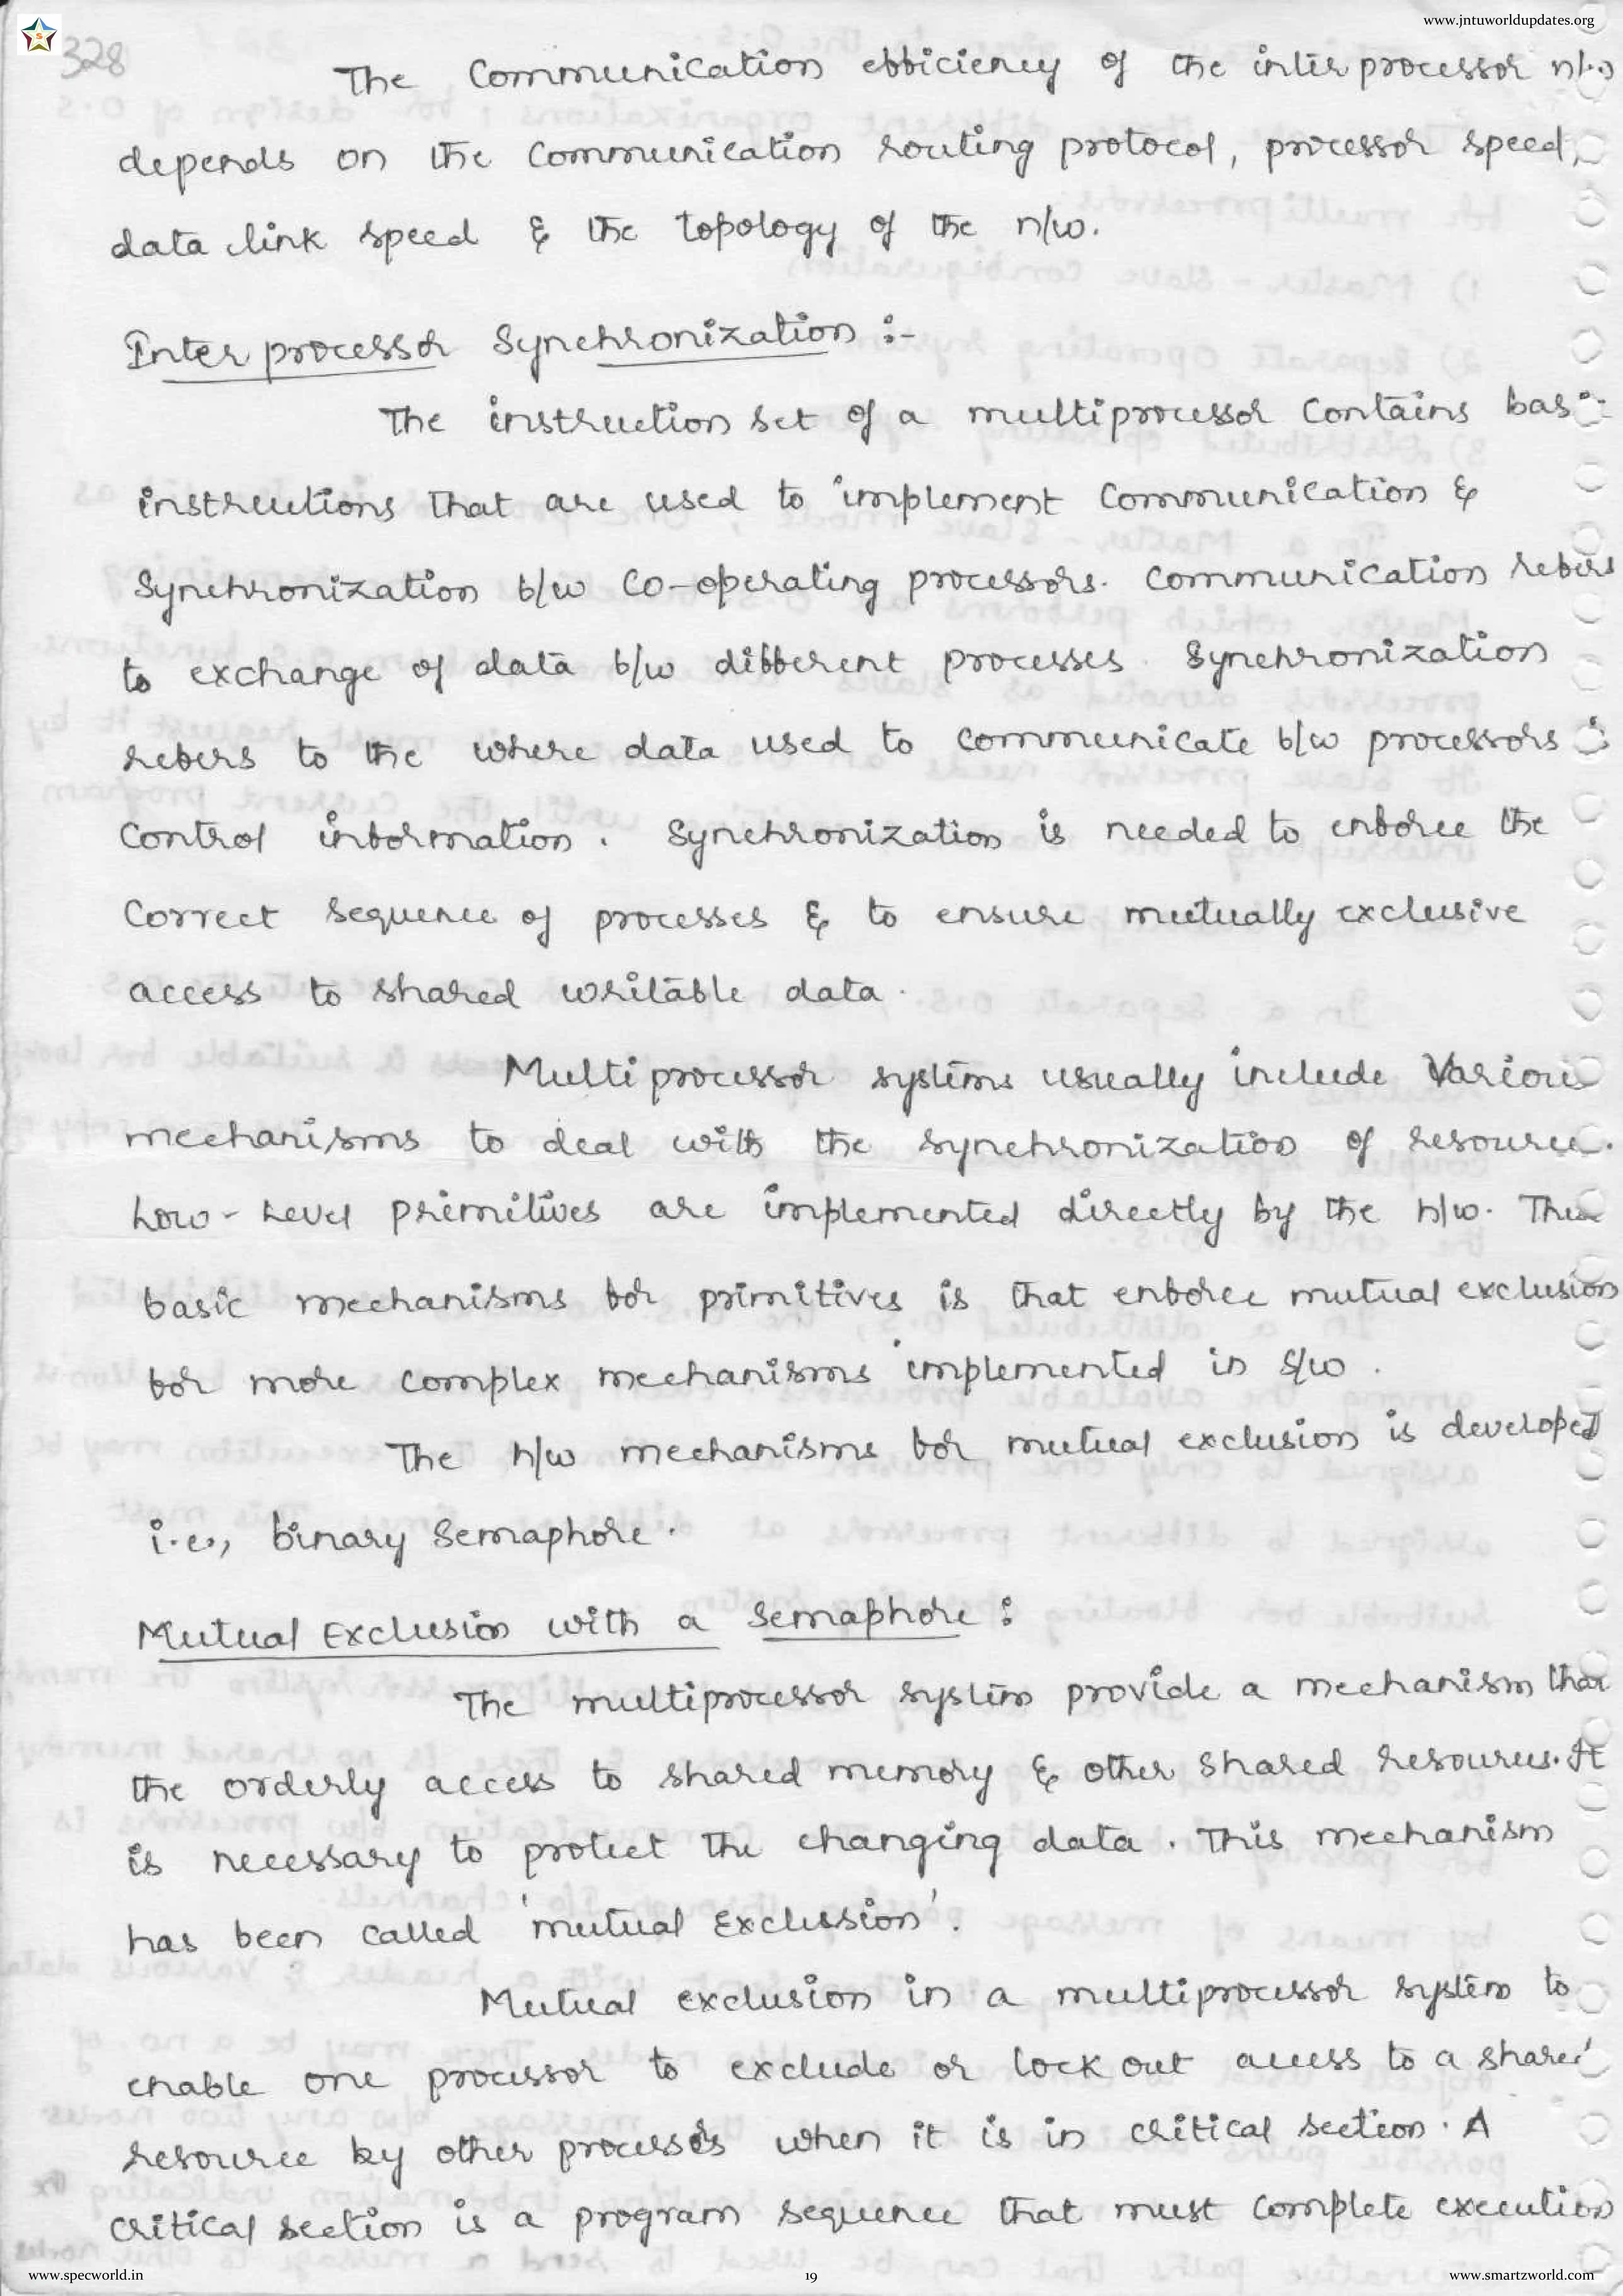 www.jntuworldupdates.org
328
The Communication efficiency of the inter processor n/w
depends on the Communication routing protocol, processor speed,
data link speed & the topology of the n/w.
Inter processor Synchronization :-
The instruction set of a multiprocessor Contains basic
instructions that are used to implement Communication &
Synchronization b/w Co-operating processors. Communication refers
to exchange of data b/w different processes. Synchronization
refers to the where data used to communicate b/w processors is
Control information. Synchronization is needed to enforce the
Correct sequence of processes & to ensure mutually exclusive
access to shared writable data.
Multiprocessor systems usually include Various
mechanisms to deal with the synchronization of resource.
Low-Level primitives are implemented directly by the h/w. These
basic mechanisms for primitives is that enforce mutual exclusion
for more complex mechanisms implemented in S/w.
The h/w mechanisms for mutual exclusion is developed
i.e., binary Semaphore.
Mutual Exclusion with a Semaphore :
The multiprocessor system provide a mechanism that
the orderly access to shared memory & other Shared resources. It
is necessary to protect the changing data. This mechanism
has been called 'mutual Exclusion'.
Mutual exclusion in a multiprocessor system to
enable one processor to exclude or lock out access to a shared
resource by other processes when it is in critical section. A
critical section is a program sequence that must Complete execution
www.specworld.in
19
www.smartzworld.com